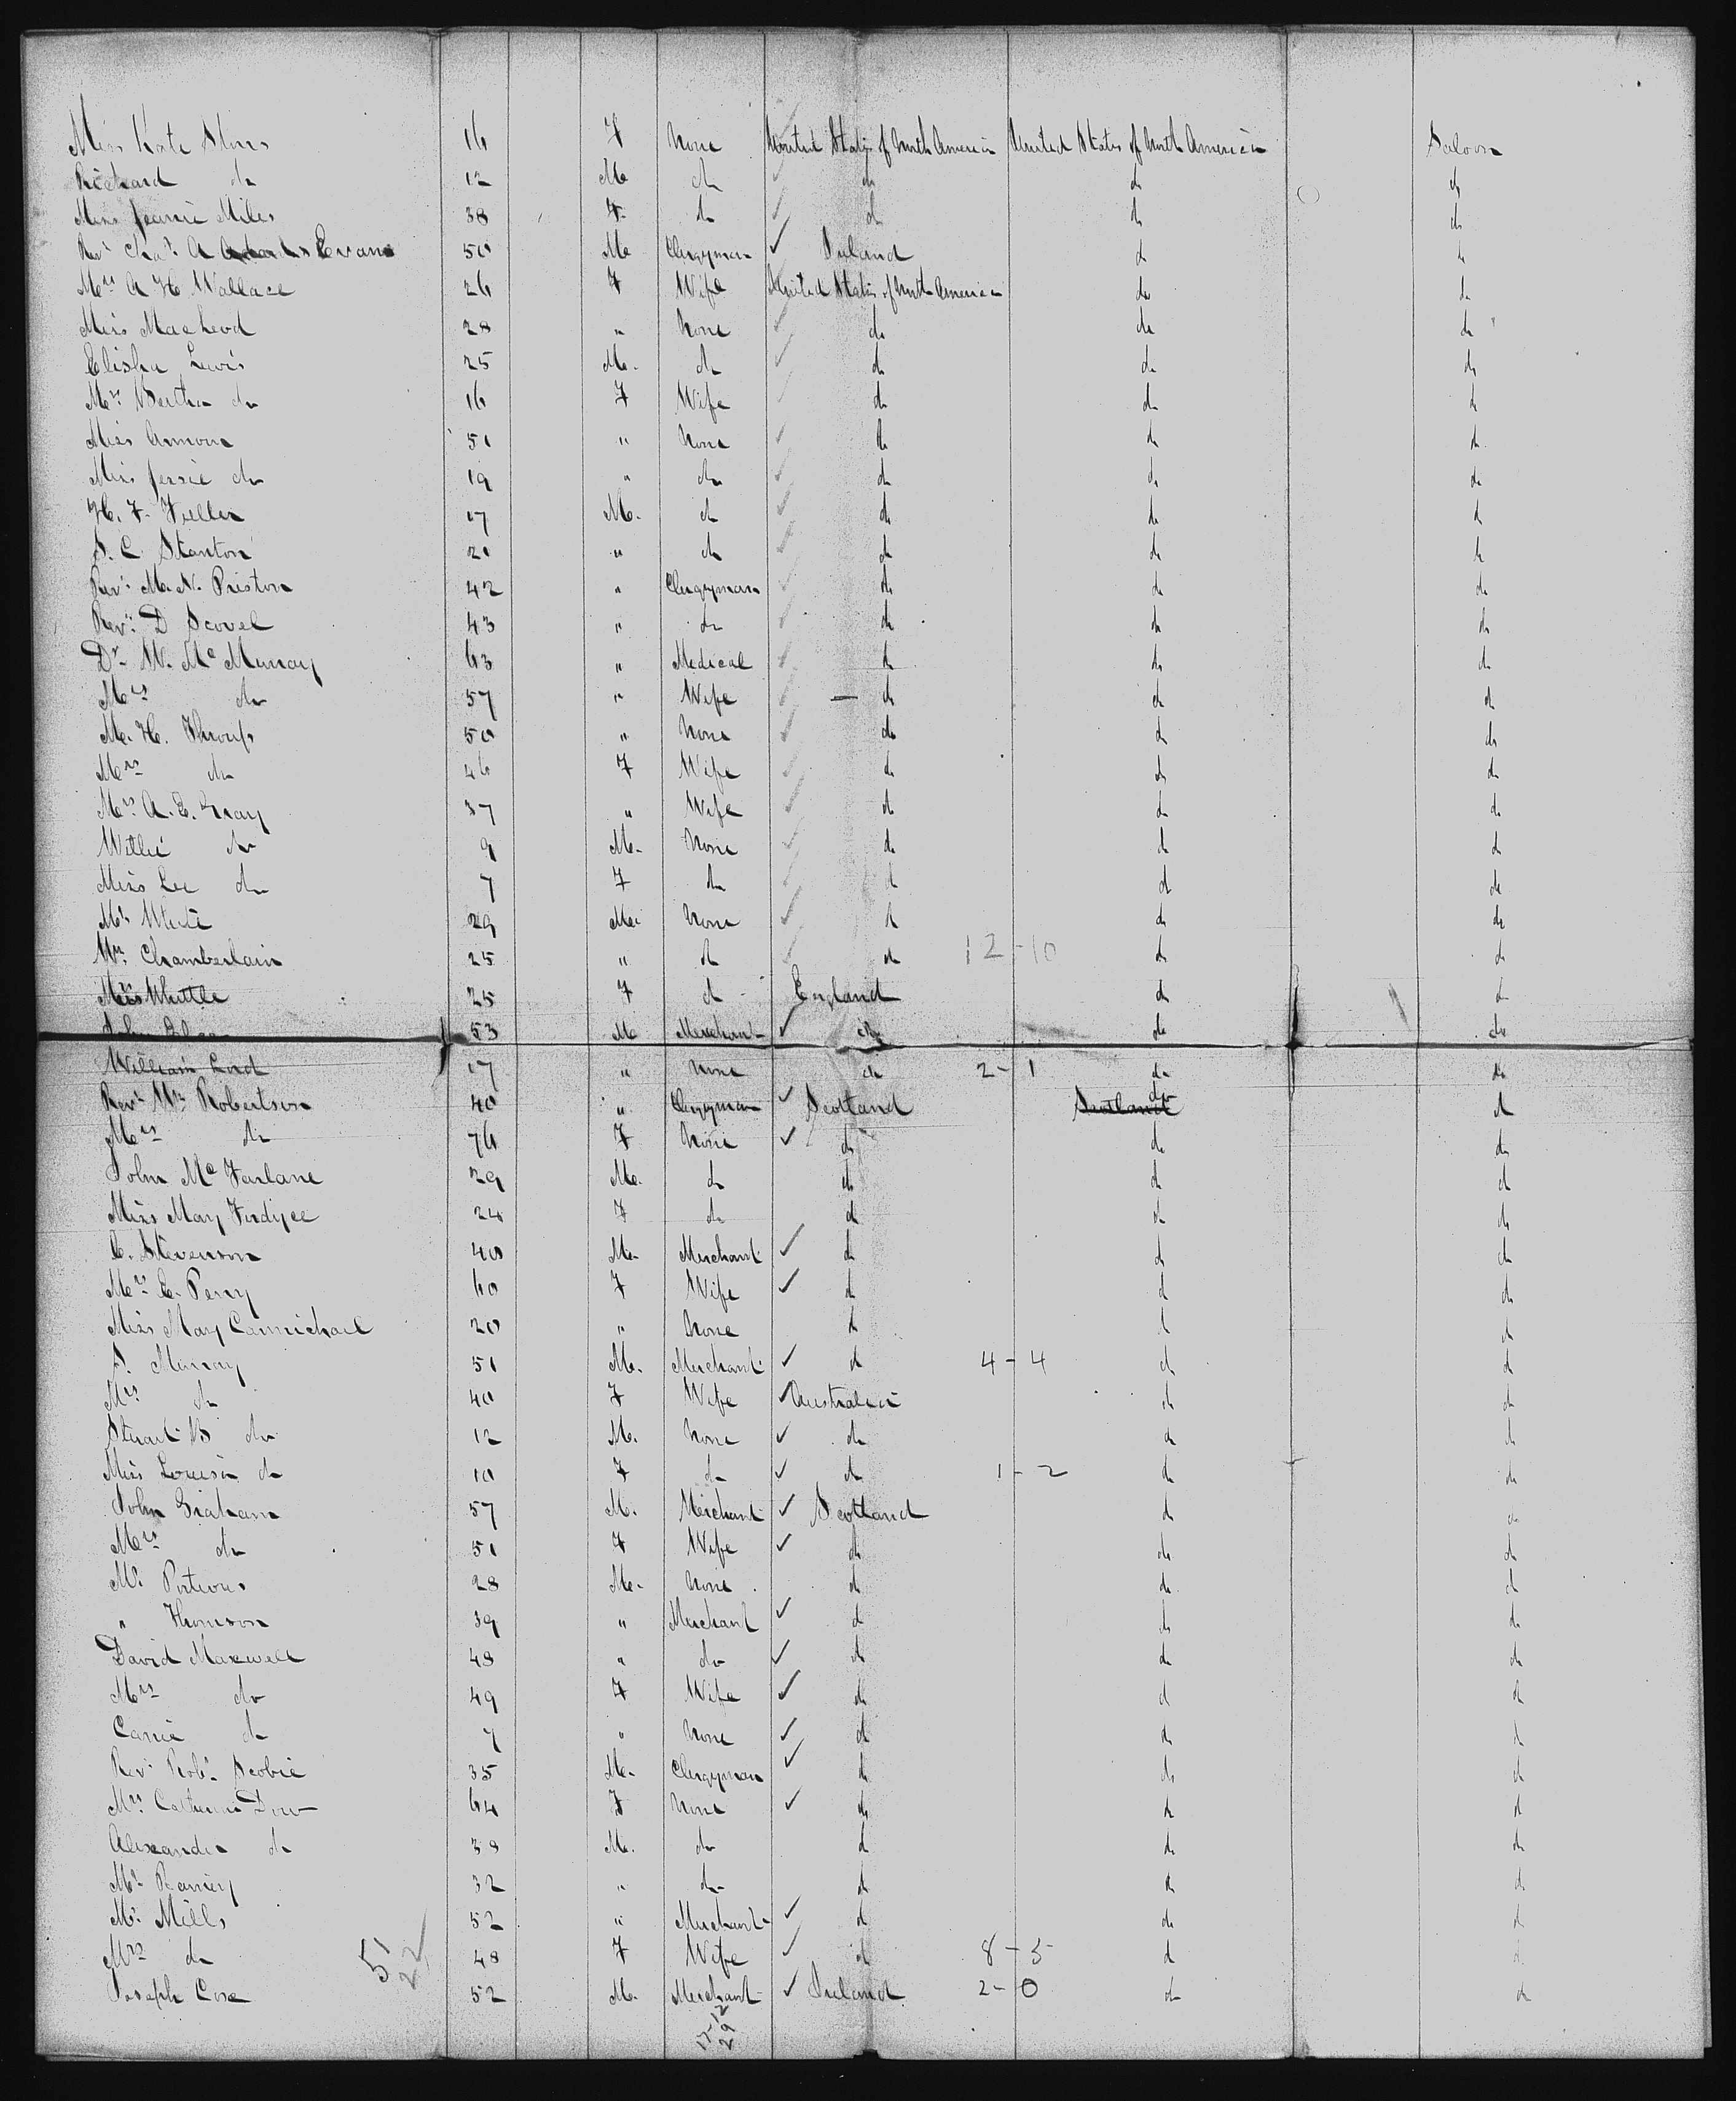 Miss Kate 16 F None United States of North America United States of North America Saloon
Richard do 12 M do do do do
Miss Jeanie Miles 38 F do do do do
Revd Chas. A Evans 50 M Clergyman Ireland do do
Mrs A H Wallace 26 F Wife United States of North America do do
Miss MacLeod 28 " None do do do
Elisha Lewis 25 M. do do do do
Mrs Bertha do 16 F Wife do do do
Miss Armour 51 " None do do do
Miss Jessie do 19 " do do do do
H. F. Fuller 17 M. do do do do
S. C. Stanton 20 " do do do do
Revd M. N. Preston 42 " Clergyman do do do
Revd D Scovel 43 " do do do do
Dr W. Mc Murray 63 " Medical do do do
Mrs do 57 " Wife – do do do
M. H. Throup 50 " None do do do
Mrs do 46 F Wife do do do
Mrs A. E. Gray 37 " Wife do do do
Willie do 9 M. None do do do
Miss Lee do 7 F do do do do
Mr White 29 M. None do do do
Mr Chamberlain 25 " do do 12-10 do do
Miss Whittle 25 F do England do do
John 53 M Merchant do do do
William Lord 17 " None do 2-1 do do
Revd Mr Robertson 40 " Clergyman Scotland Scotland do do
Mrs do 76 F None do do do
John Mc Farlane 29 M. do do do do
Miss Mary Fordyce 24 F do do do do
C. Stevenson 40 M. Merchant do do do
Mrs E. Perry 60 F Wife do do do
Miss Mary Carmichael 20 " None do do do
S. Murray 51 M. Merchant do 4-4 do do
Mrs do 40 F Wife Australia do do
Stuart B do 12 M. None do do do
Miss Louisa do 10 F do do 1-2 do do
John Graham 57 M. Merchant Scotland do do
Mrs do 51 F Wife do do do
Mr Porteous 28 M. None do do do
" Thomson 39 " Merchant do do do
David Maxwell 48 " do do do do
Mrs do 49 F Wife do do do
Carrie do 7 " None do do do
Revd Robt Scobie 35 M. Clergyman do do do
Mrs Catherine Dow 64 F None do do do
Alexander do 38 M. do do do do
Mr 32 " do do do do
Mr Mills 52 " Merchant do do do
Mrs do 48 F Wife do 8-5 do do
51
22
Joseph Cox 52 M. Merchant Ireland 2-0 do do
17-12
29